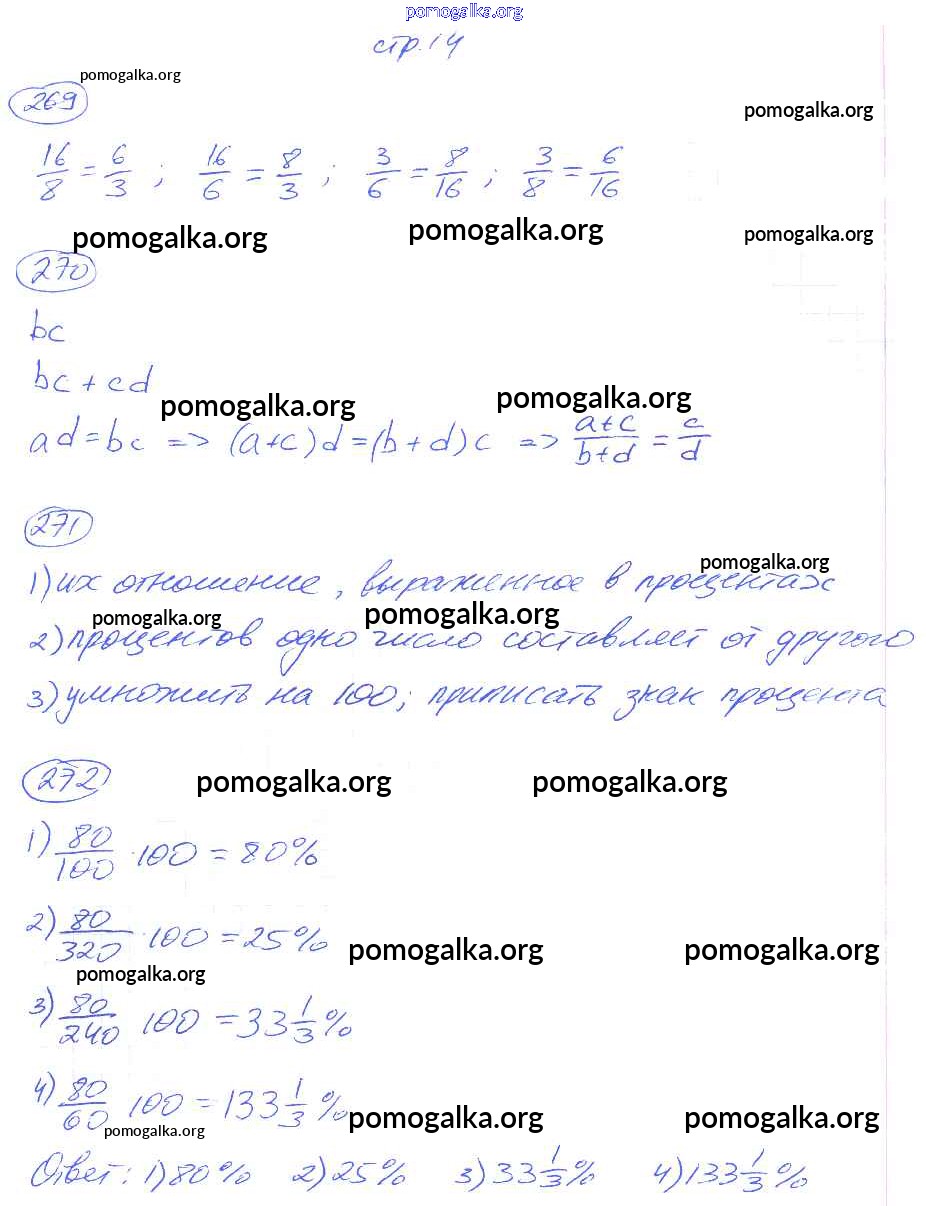 pomogalka.org
стр. 14
pomogalka.org
269
pomogalka.org
16/8 = 6/3 ; 16/6 = 8/3 ; 3/6 = 8/16 ; 3/8 = 6/16
pomogalka.org pomogalka.org pomogalka.org
270
bc
bc + cd
pomogalka.org pomogalka.org
ad = bc => (a+c)d = (b+d)c => (a+c)/(b+d) = c/d
271
pomogalka.org
1) их отношение, выраженное в процентах
pomogalka.org pomogalka.org
2) процентов одно число составляет от другого
3) умножить на 100; приписать знак процента
272
pomogalka.org pomogalka.org
1) 80/100 · 100 = 80%
2) 80/320 · 100 = 25%
pomogalka.org pomogalka.org
pomogalka.org
3) 80/240 100 = 33 1/3 %
4) 80/60 100 = 133 1/3 %
pomogalka.org pomogalka.org
pomogalka.org
Ответ: 1) 80% 2) 25% 3) 33 1/3 % 4) 133 1/3 %